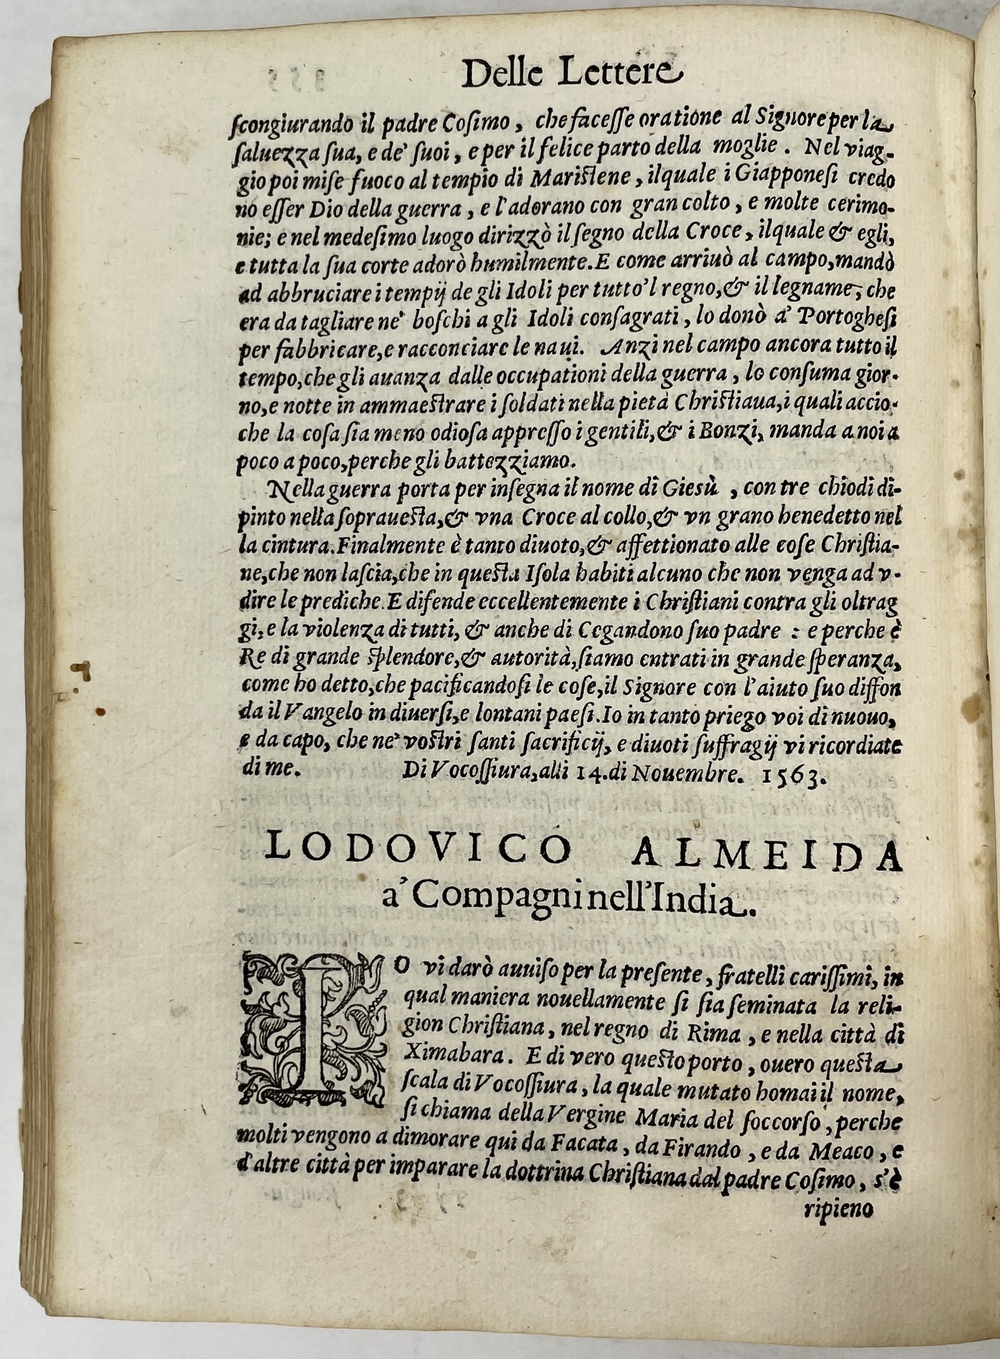 Delle Lettere
ſcongiurando il padre Coſimo, che faceſſe oratione al Signore per la
ſaluezza ſua, e de' ſuoi, e per il felice parto della moglie. Nel viag-
gio poi miſe fuoco al tempio di Mariſtene, ilquale i Giapponeſi credo
no eſſer Dio della guerra, e l'adorano con gran colto, e molte cerimo-
nie; e nel medeſimo luogo dirizzò il ſegno della Croce, ilquale & egli,
e tutta la ſua corte adorò humilmente. E come arriuò al campo, mandò
ad abbruciare i tempij de gli Idoli per tutto'l regno, & il legname, che
era da tagliare ne' boſchi a gli Idoli conſagrati, lo donò a' Portogheſi
per fabbricare, e racconciare le naui. Anzi nel campo ancora tutto il
tempo, che gli auanza dalle occupationi della guerra, lo conſuma gior-
no, e notte in ammaeſtrare i ſoldati nella pietà Chriſtiaua, i quali accio-
che la coſa ſia meno odioſa appreſſo i gentili, & i Bonzi, manda a noi a
poco a poco, perche gli battezziamo.
Nella guerra porta per inſegna il nome di Gieſù, con tre chiodi di-
pinto nella ſoprauesta, & vna Croce al collo, & vn grano benedetto nel
la cintura. Finalmente è tanto diuoto, & affettionato alle coſe Chriſtia-
ne, che non laſcia, che in questa Iſola habiti alcuno che non venga ad v-
dire le prediche. E difende eccellentemente i Chriſtiani contra gli oltrag
gi, e la violenza di tutti, & anche di Cegandono ſuo padre : e perche è
Re di grande ſplendore, & autorità, ſiamo entrati in grande ſperanza,
come ho detto, che pacificandoſi le coſe, il Signore con l'aiuto ſuo diffon
da il Vangelo in diuerſi, e lontani paeſi. Io in tanto priego voi di nuouo,
e da capo, che ne' vostri ſanti ſacrificij, e diuoti ſuffragij vi ricordiate
di me. Di Vocoſſiura, alli 14. di Nouembre. 1563.
LODOVICO ALMEIDA
a' Compagni nell'India.
IO vi darò auuiſo per la preſente, fratelli cariſſimi, in
qual maniera nouellamente ſi ſia ſeminata la reli-
gion Chriſtiana, nel regno di Rima, e nella città di
Ximabara. E di vero questo porto, ouero questa
ſcala di Vocoſſiura, la quale mutato homai il nome,
ſi chiama della Vergine Maria del ſoccorſo, perche
molti vengono a dimorare qui da Facata, da Firando, e da Meaco, e
d'altre città per imparare la dottrina Chriſtiana dal padre Coſimo, s'è
ripieno